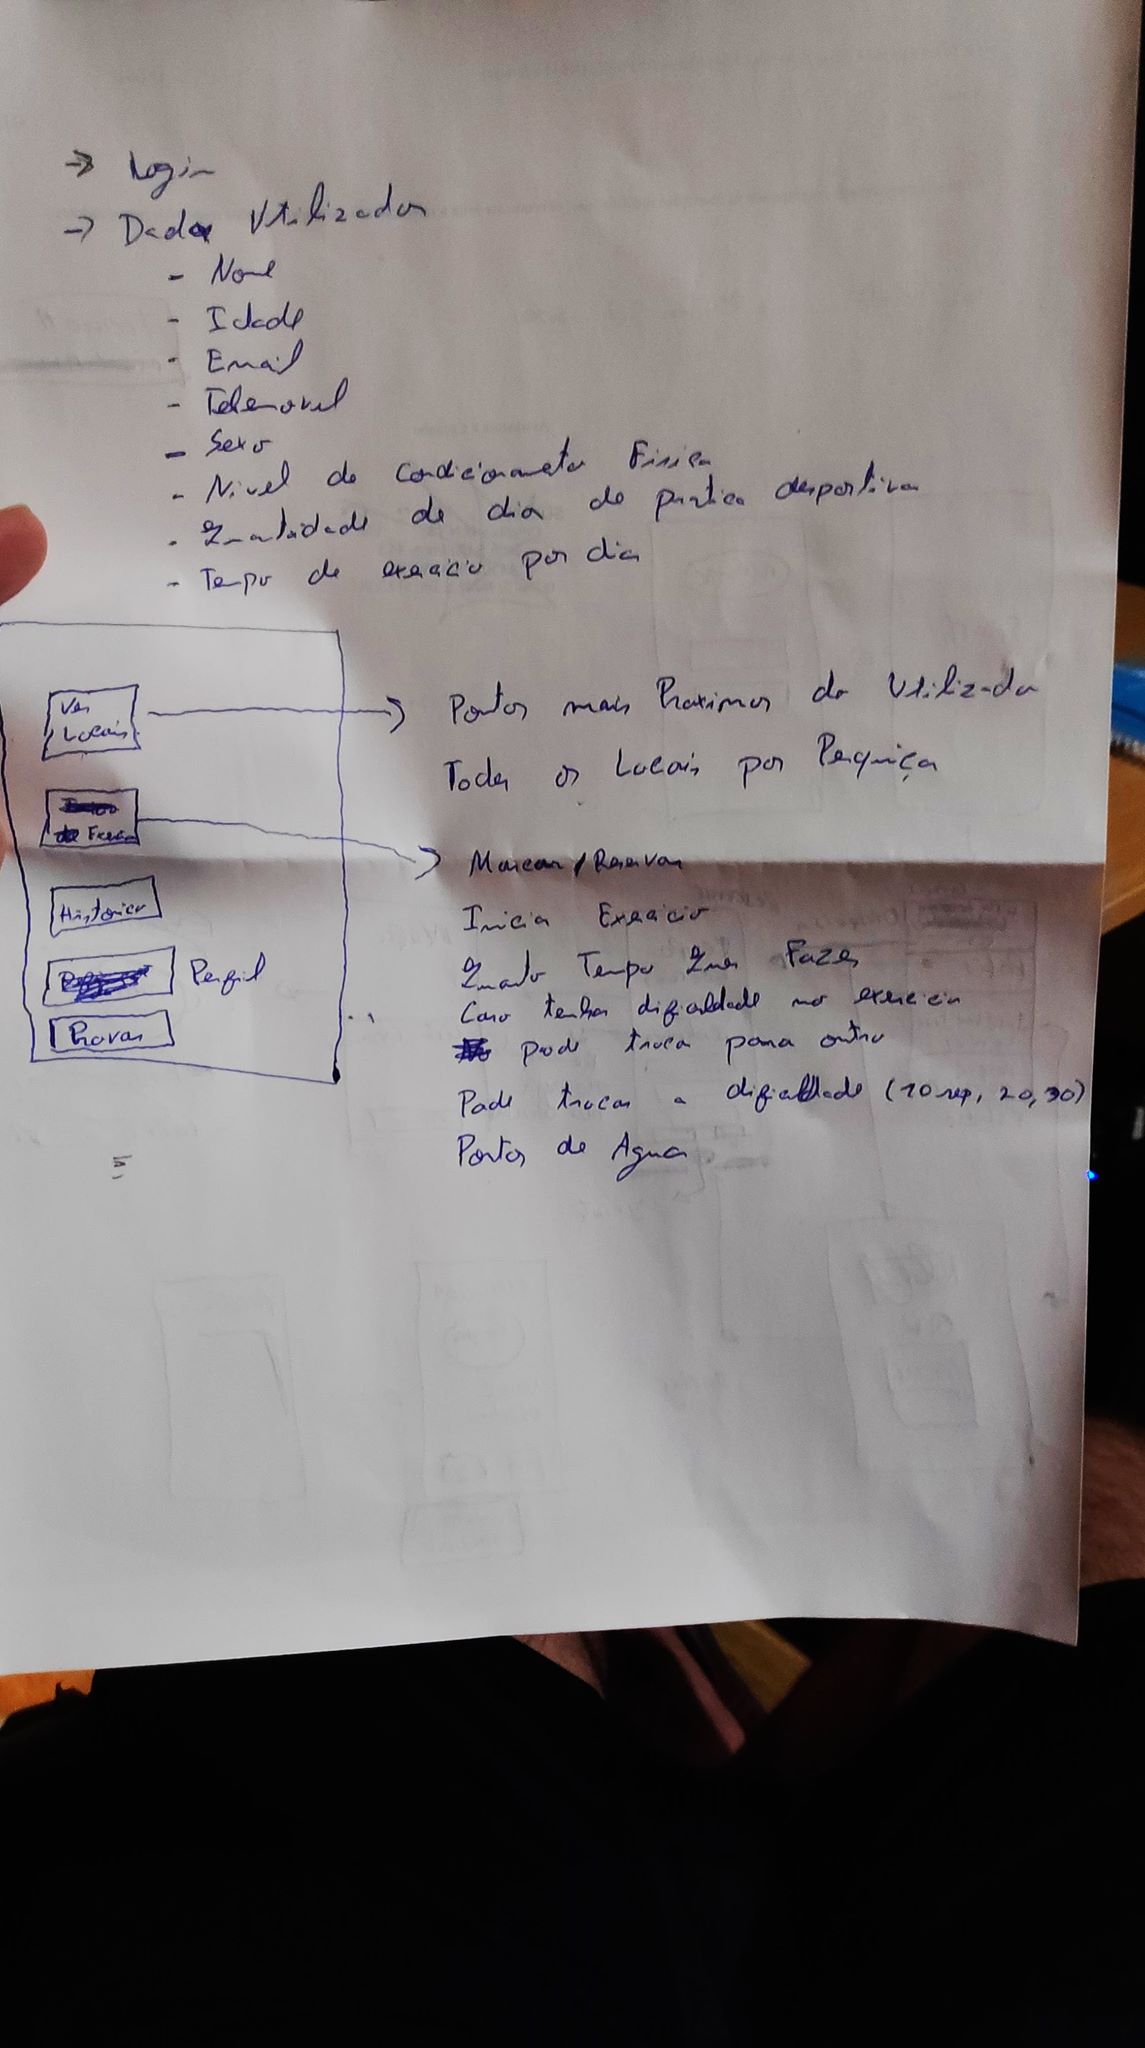 → Login
→ Dados Utilizador
- Nome
- Idade
- Email
- Telemovel
- Sexo
- Nivel de Condicionameto Fisico
- Quantidade de dia de pratica desportiva
- Tempo de exercicio por dia
Ver
Locais
Pontos mais Proximos do Utilizador
Todos os Locais por Pesquiça
de Exerci
Marcar / Reservar
Historico
Inicia Exercicio
Quanto Tempo Quer Fazer
Perfil
Caso tenha dificuldade no exercicio
pode troca para outro
Provas
Pode trocar a dificuldade (10 rep, 20, 30)
Pontos de Agua